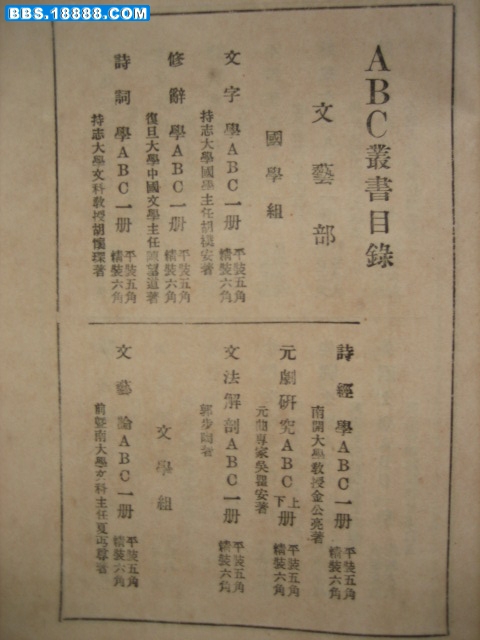 BBS.18888.COM
ABC叢書目錄
文藝部
國學組
文字學ABC一册 平裝五角 精裝六角
持志大學國學主任胡樸安著
修辭學ABC一册 平裝五角 精裝六角
復旦大學中國文學主任陳望道著
詩詞學ABC一册 平裝五角 精裝六角
持志大學文科教授胡懷琛著
詩經學ABC一册 平裝五角 精裝六角
南開大學教授金公亮著
元劇研究ABC上下册 平裝五角 精裝六角
元曲專家吳瞿安著
文法解剖ABC一册 平裝五角 精裝六角
郭步陶著
文學組
文藝論ABC一册 平裝五角 精裝六角
前暨南大學文科主任夏丏尊著